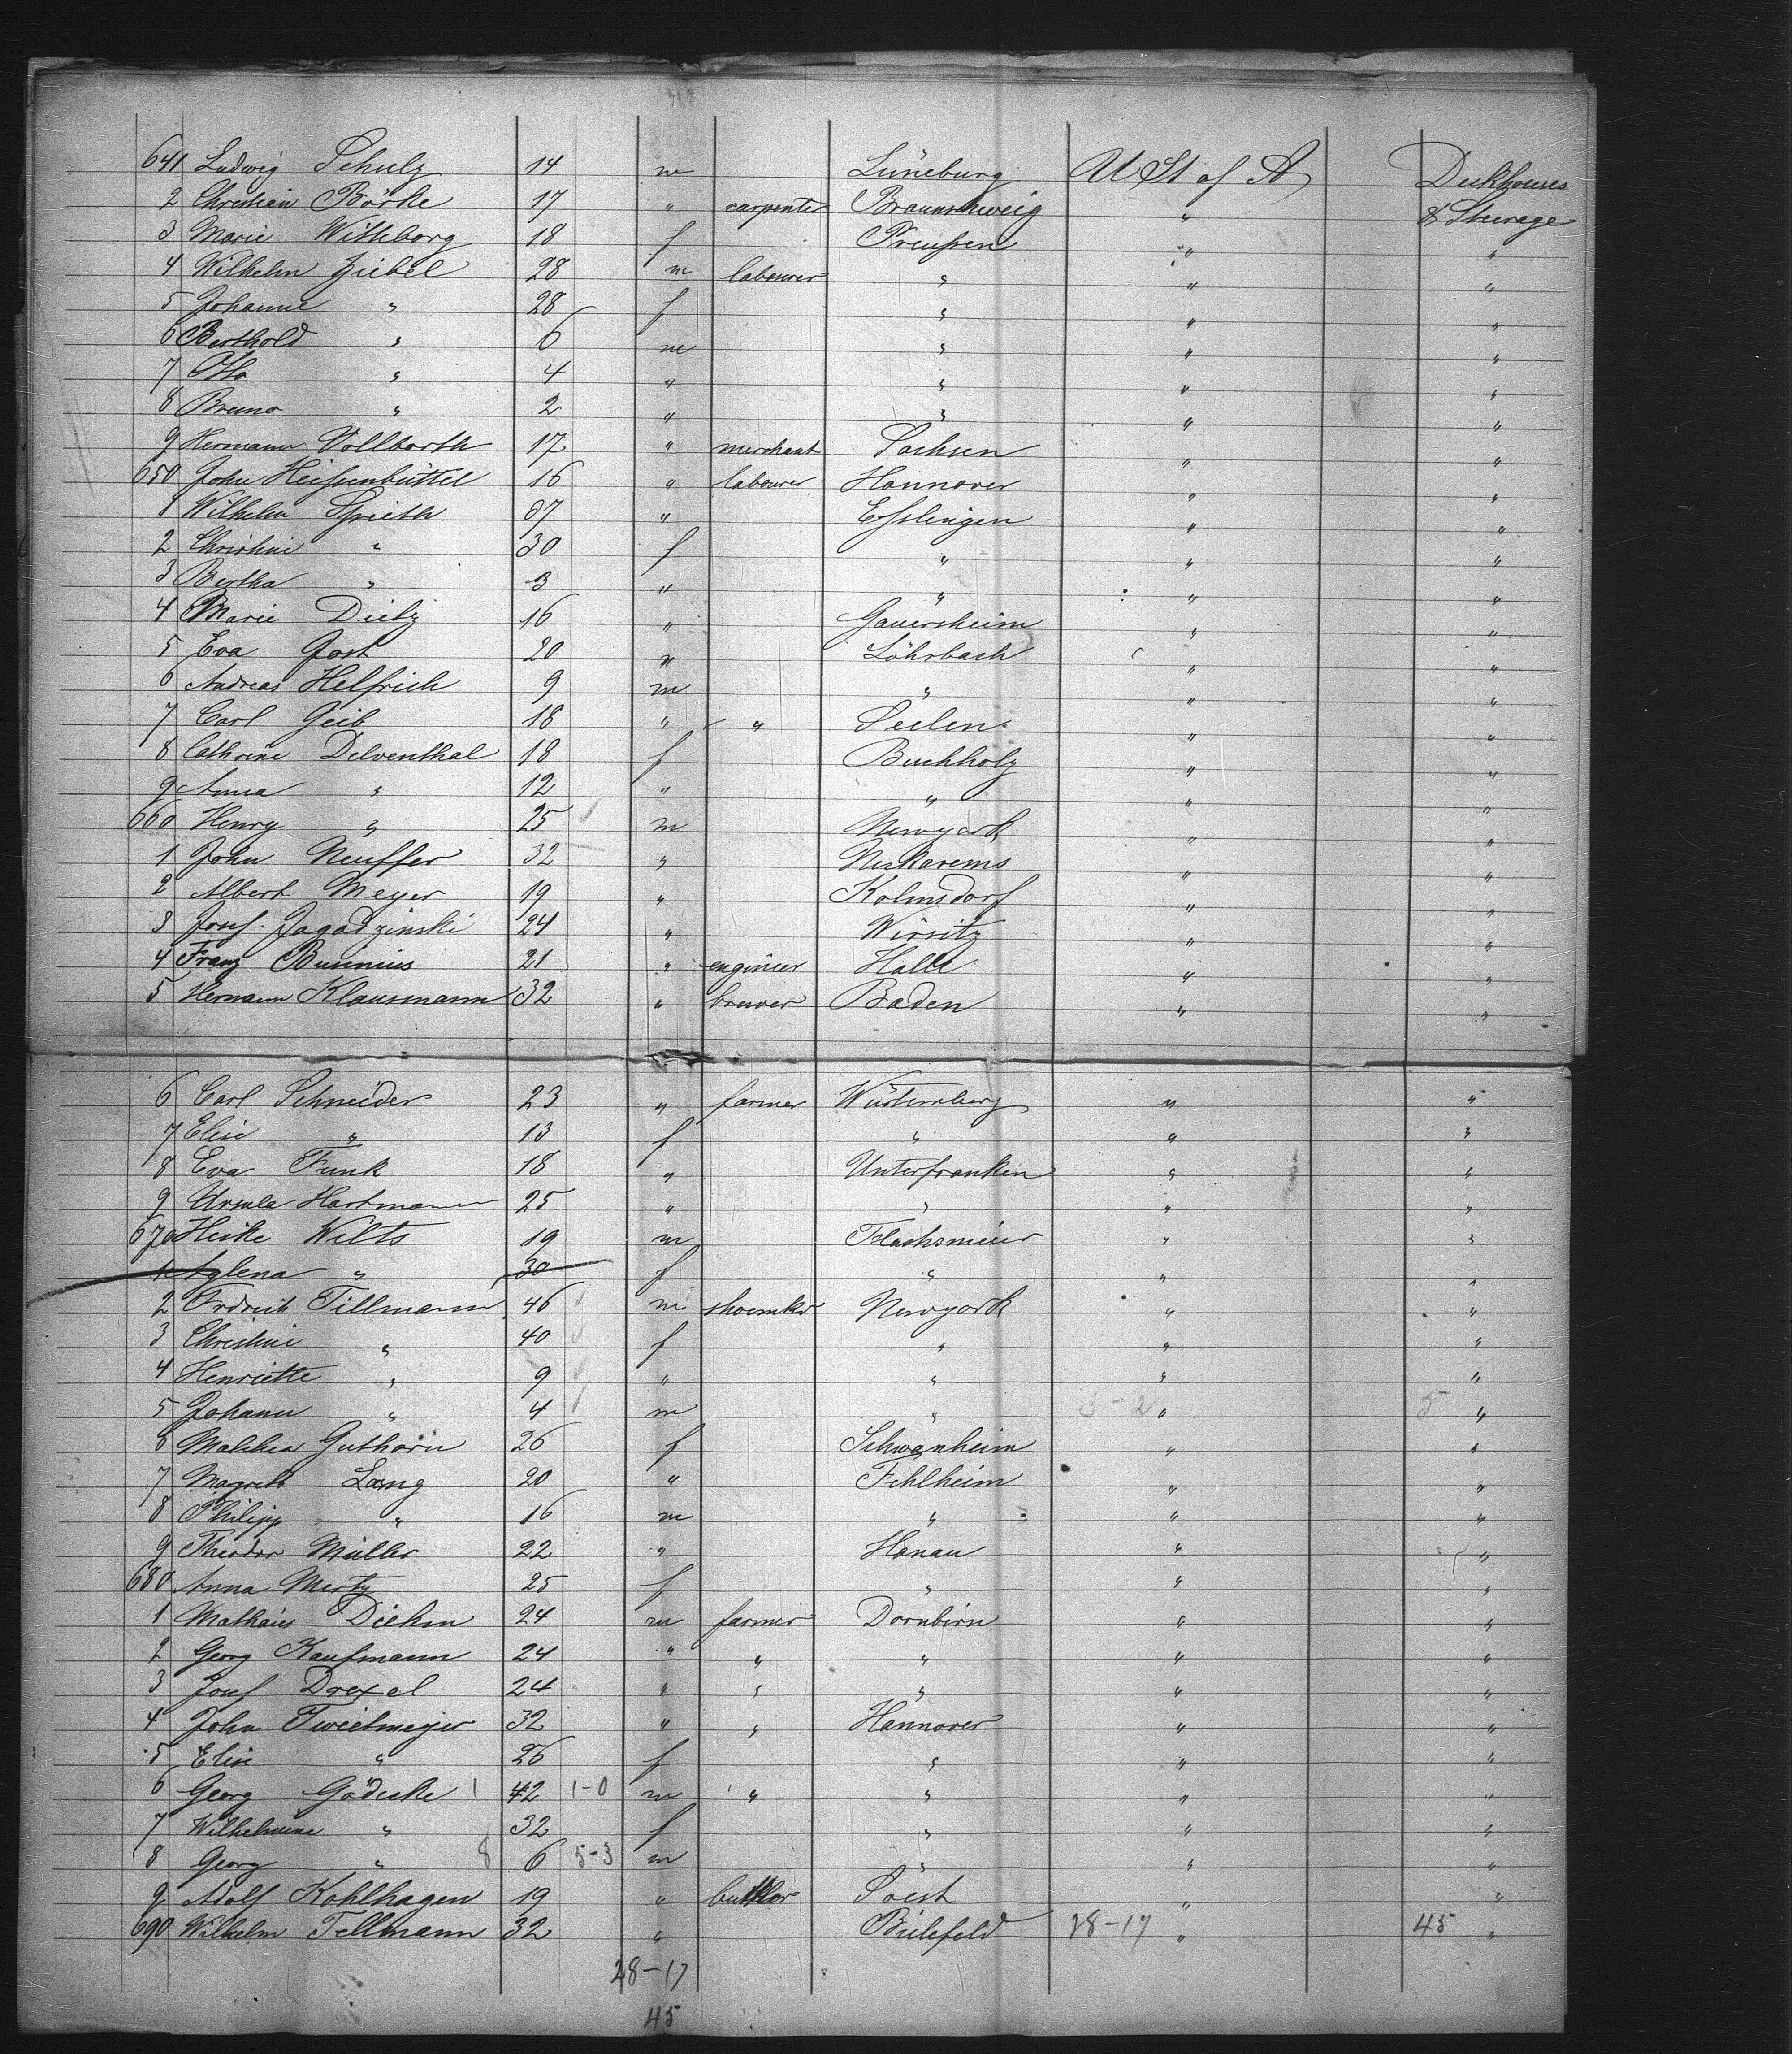 641 Ludwig Schulz 14 m Lüneburg U St of A Deckhouses
2 Christian Börke 17 " carpenter Braunschweig " & Steerage
3 Marie Witteborg 18 f Preußen " "
4 Wilhelm Ziebel 28 m labourer " " "
5 Johanne " 28 f " " "
6 Berthold " 6 m " " "
7 Otto " 4 " " " "
8 Bruno " 2 " " " "
9 Hermann Vollborth 17 " merchant Sachsen " "
650 John Heißenbüttel 16 " labourer Hannover " "
1 Wilhelm Spieth 37 " Eßlingen " "
2 Christine " 30 f " " "
3 Bertha " 3 " " " "
4 Marie Dietz 16 " Gauersheim " "
5 Eva Jost 20 " Löhrbach " "
6 Andreas Helfrich 9 m " " "
7 Carl Geib 18 " " Seelen " "
8 Cathrine Delventhal 18 f Buchholz " "
9 Anna " 12 " " " "
660 Henry " 25 m Newyork " "
1 John Neuffer 32 " Neckarems " "
2 Albert Meyer 19 " Kolmsdorf " "
3 Josef Jagadzinski 24 " Wirsitz " "
4 Franz Businius 21 " engineer Halle " "
5 Hermann Klausmann 32 " brewer Baden " "
6 Carl Schneider 23 " farmer Würtemberg " "
7 Elise " 13 f " " "
8 Eva Funk 18 " Unterfranken " "
9 Ursula Hartmann 25 " " " "
670 Heike Wilts 19 m Flachsmeier " "
1 Aglena " 30 f " " "
2 Frdrich Tillmann 46 m shoemker Newyork " "
3 Christine " 40 f " " "
4 Henriette " 9 " " " "
5 Johann " 4 m " 3-2 " 5 "
6 Malchea Guthorn 26 f Schwanheim " "
7 Magreth Lang 20 " Fehlheim " "
8 Philipp " 16 m " " "
9 Theodor Müller 22 " Hanau " "
680 Anna Mertz 25 f " " "
1 Mathäus Diehm 24 m farmer Dornbirn " "
2 Georg Kaufmann 24 " " " " "
3 Josef Drexel 24 " " " " "
4 John Twietmeyer 32 " " Hannover " "
5 Elise " 26 f " " "
6 Georg Gödecke 1 42 1-0 m " " " "
7 Wilhelmine " 32 f " " "
8 Georg " 8 6 5-3 m " " "
9 Adolf Kohlhagen 19 " buttler Soest " "
690 Wilhelm Tellmann 32 " Bielefeld 28-17 " 45 "
28-17
45